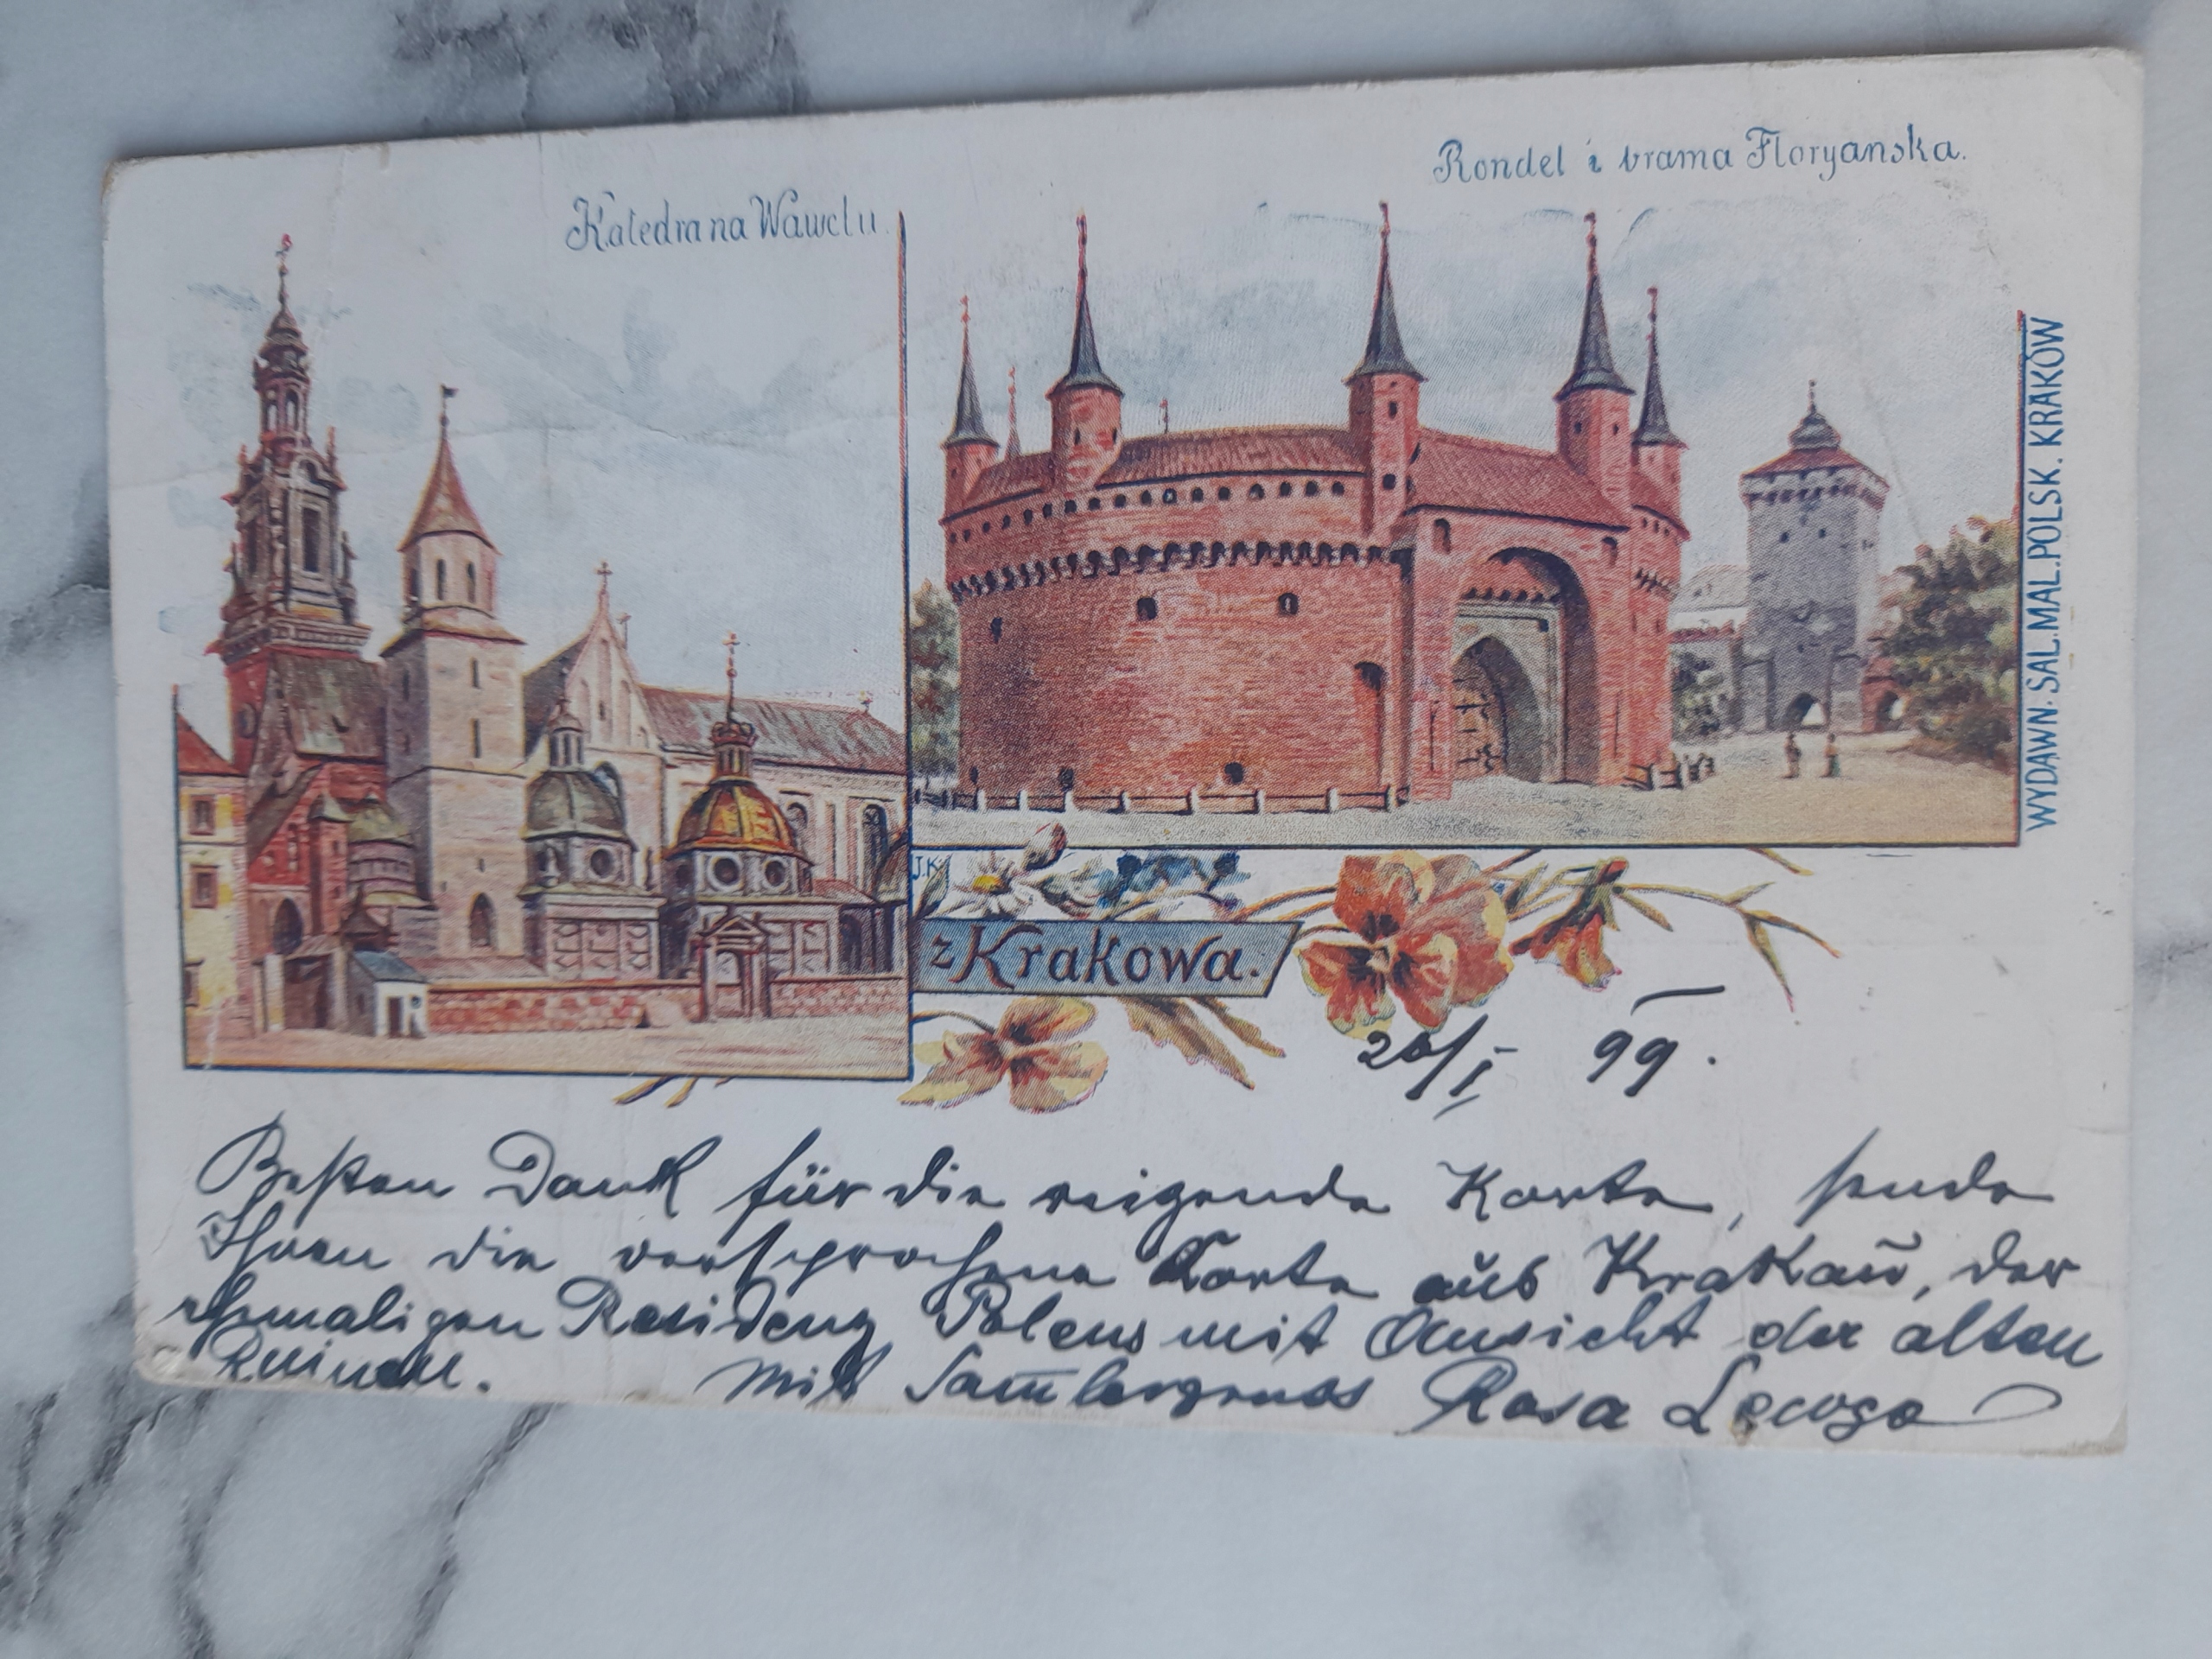 Katedra na Wawelu.
Rondel i brama Floryanska.
WYDAWN. SAL. MAL. POLSK. KRAKÓW
J.K.
z Krakowa.
26/I 99.
Besten Dank für die reizende Karte, sende
Ihnen die versprochene Karte aus Krakau, der
ehemaligen Residenz Polens mit Ansicht der alten
Ruinen. Mit Sam̅lergruss Rosa